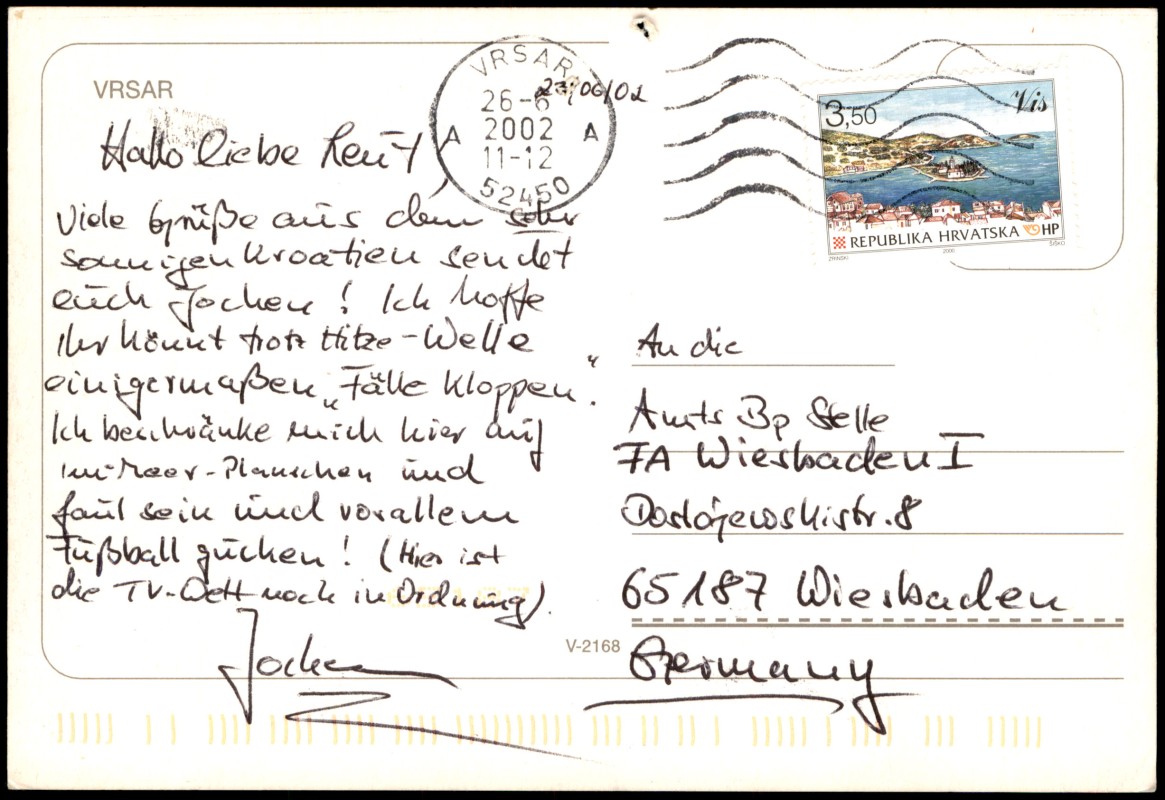 VRSAR
VRSAR
26-6
2002
11-12
A A
52450
23/06/02
3,50
Vis
REPUBLIKA HRVATSKA HP
ZRINSKI 2000 ŠIŠKO
Hallo liebe Leut,
viele Grüße aus dem sehr
sonnigen Kroatien sendet
euch Jochen! Ich hoffe
Ihr könnt trotz Hitze-Welle
einigermaßen „Fälle kloppen“.
Ich beschränke mich hier auf
im-Meer-Planschen und
faul sein und vorallem
Fußball gucken! (Hier ist
die TV-Welt noch in Ordnung).
Jochen
An die
Amts Bp Stelle
FA Wiesbaden I
Dostojewskistr. 8
65187 Wiesbaden
Germany
V-2168